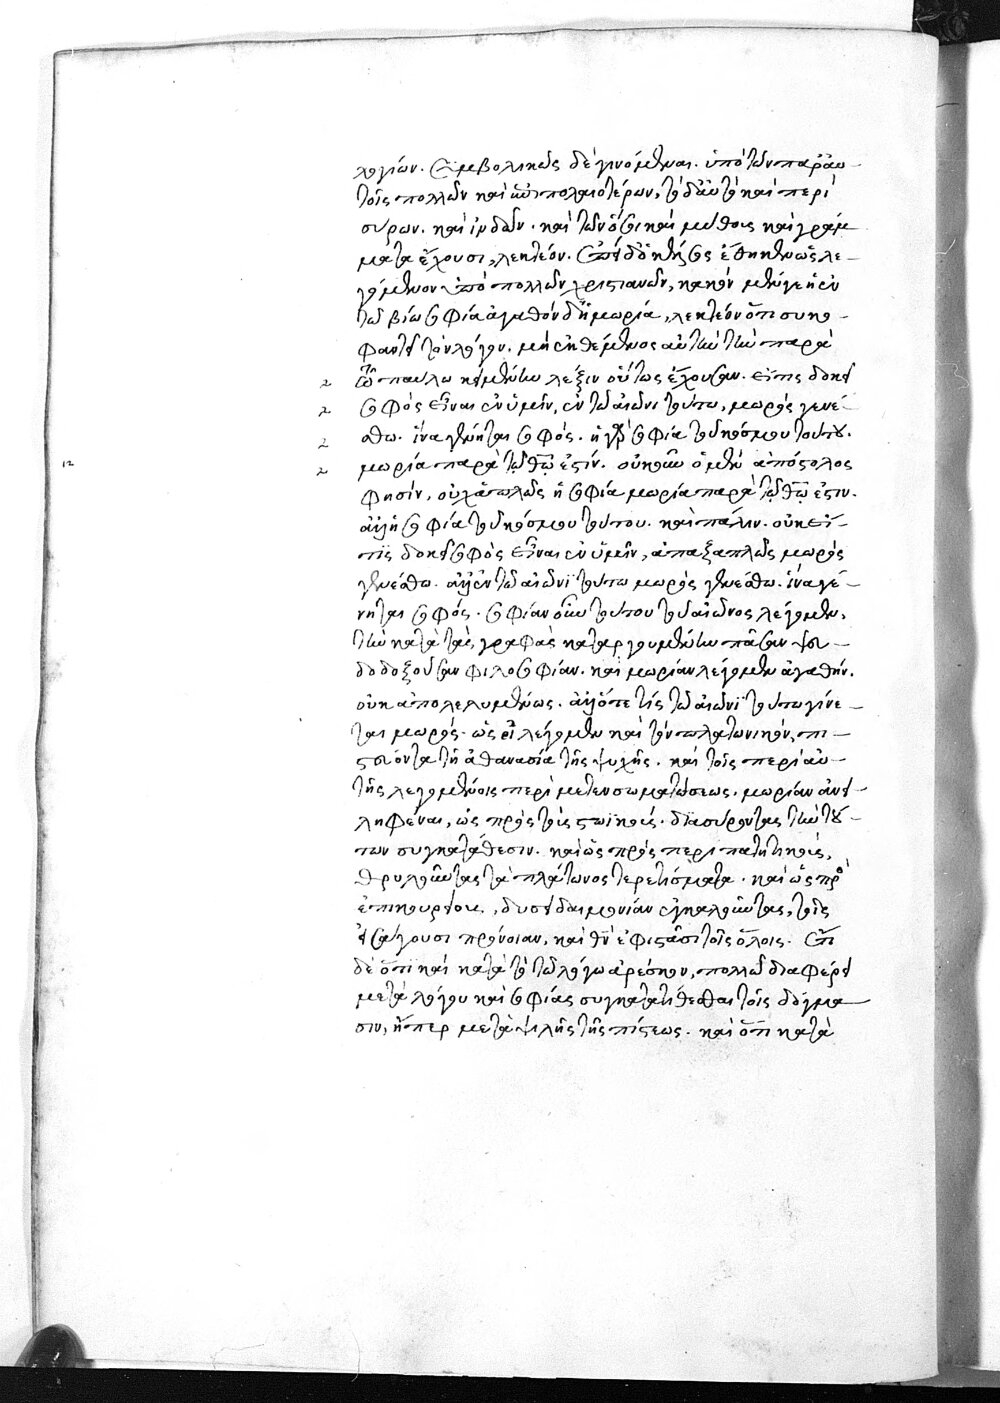 λογίων. συμβολικῶς δὲ γινόμεναι. ὑπὸ τῶν παρ' αὐ-
τοῖς πολλῶν καὶ ἐπιπολαιοτέρων, τὸ δ' αὐτὸ καὶ περὶ
σύρων. καὶ ἰνδῶν. καὶ τῶν ὅσοι καὶ μύθους καὶ γράμ-
ματα ἔχουσι, λεκτέον. ἐπεὶ δ' ὁ κέλσος ἔθηκεν ὡς λε-
γόμενον ὑπὸ πολλῶν χριστιανῶν, κακὸν μέν γε ἡ ἐν
τῷ βίῳ σοφία ἀγαθὸν δ' ἡ μωρία, λεκτέον ὅτι συκο-
φαντεῖ τὸν λόγον. μὴ ἐκθέμενος αὐτὴν τὴν παρὰ
τῷ παύλῳ κειμένην λέξιν οὕτως ἔχουσαν. εἴ τις δοκεῖ
σοφὸς εἶναι ἐν ὑμῖν, ἐν τῷ αἰῶνι τούτῳ, μωρὸς γενέ-
σθω. ἵνα γένηται σοφός. ἡ γὰρ σοφία τοῦ κόσμου τούτου.
μωρία παρὰ τῷ θῶ ἐστίν. οὐκοῦν ὁ μὲν ἀπόστολος
φησίν, οὐχ ἁπλῶς ἡ σοφία μωρία παρὰ τῷ θῶ ἐστιν.
ἀλλ' ἡ σοφία τοῦ κόσμου τούτου. καὶ πάλιν. οὐκ εἴ
τις δοκεῖ σοφὸς εἶναι ἐν ὑμῖν, ἁπαξαπλῶς μωρὸς
γενέσθω. ἀλλ' ἐν τῷ αἰῶνι τούτῳ μωρὸς γενέσθω. ἵνα γέ-
νηται σοφός. σοφίαν οὖν τούτου τοῦ αἰῶνος λέγομεν,
τὴν κατὰ τὰς γραφὰς καταργουμένην πᾶσαν ψευ-
δοδοξοῦσαν φιλοσοφίαν. καὶ μωρίαν λέγομεν ἀγαθήν.
οὐκ ἀπολελυμένως. ἀλλ' ὅτε τίς τῷ αἰῶνι τούτῳ γίνε-
ται μωρός. ὡς εἰ λέγομεν καὶ τὸν πλατωνικὸν, πι-
στεύοντα τῇ ἀθανασίᾳ τῆς ψυχῆς. καὶ τοῖς περὶ αὐ-
τῆς λεγομένοις περὶ μετενσωματώσεως. μωρίαν ἀνει-
ληφέναι, ὡς πρὸς τοὺς στωϊκούς. διασύροντας τὴν τού-
των συγκατάθεσιν. καὶ ὡς πρὸς περιπατητικούς,
θρυλοῦντας τὰ πλάτωνος τερετίσματα. καὶ ὡς πρὸς
ἐπικουρείους, δεισιδαιμονίαν ἐγκαλοῦντας, τοῖς
εἰσάγουσι πρόνοιαν, καὶ θν ἐφιστᾶσι τοῖς ὅλοις. ἔτι
δὲ ὅτι καὶ κατὰ τὸ τῷ λόγῳ ἀρέσκον, πολλῷ διαφέρει
μετὰ λόγου καὶ σοφίας συγκατατίθεσθαι τοῖς δόγμα-
σιν, ἤπερ μετὰ ψιλῆς τῆς πίστεως. καὶ ὅτι κατὰ